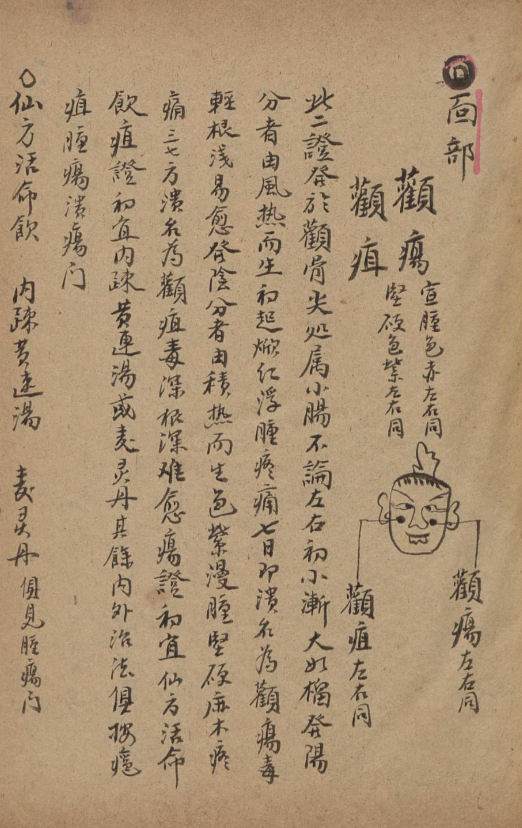 面部
顴瘍
宣腫色赤左右同
顴疽
堅硬色紫左右同
顴瘍左右同
顴疽左右同
此二證發於顴骨尖处属小腸不論左右初小漸大如榴發陽
分者由風热而生初起焮红浮腫疼痛七日即潰名為顴瘍毒
輕根浅易愈發陰分者由積热而生色紫漫腫堅硬麻木疼
痛三七方潰名為顴疽毒深根深难愈瘍證初宜仙方活命
飲疽證初宜内疎黄連湯或麦灵丹其餘内外治法俱按癰
疽腫瘍潰瘍门
○仙方活命飲 内疎黄連湯 麦灵丹俱見腫瘍门